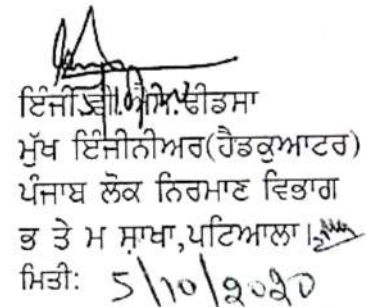 ਇੰਜੀ. ਐਸ. ਢੀਂਡਸਾ
ਮੁੱਖ ਇੰਜੀਨੀਅਰ(ਹੈਡਕੁਆਟਰ)
ਪੰਜਾਬ ਲੋਕ ਨਿਰਮਾਣ ਵਿਭਾਗ
ਭ ਤੇ ਮ ਸ਼ਾਖਾ,ਪਟਿਆਲਾ।
ਮਿਤੀ: 5/10/2020